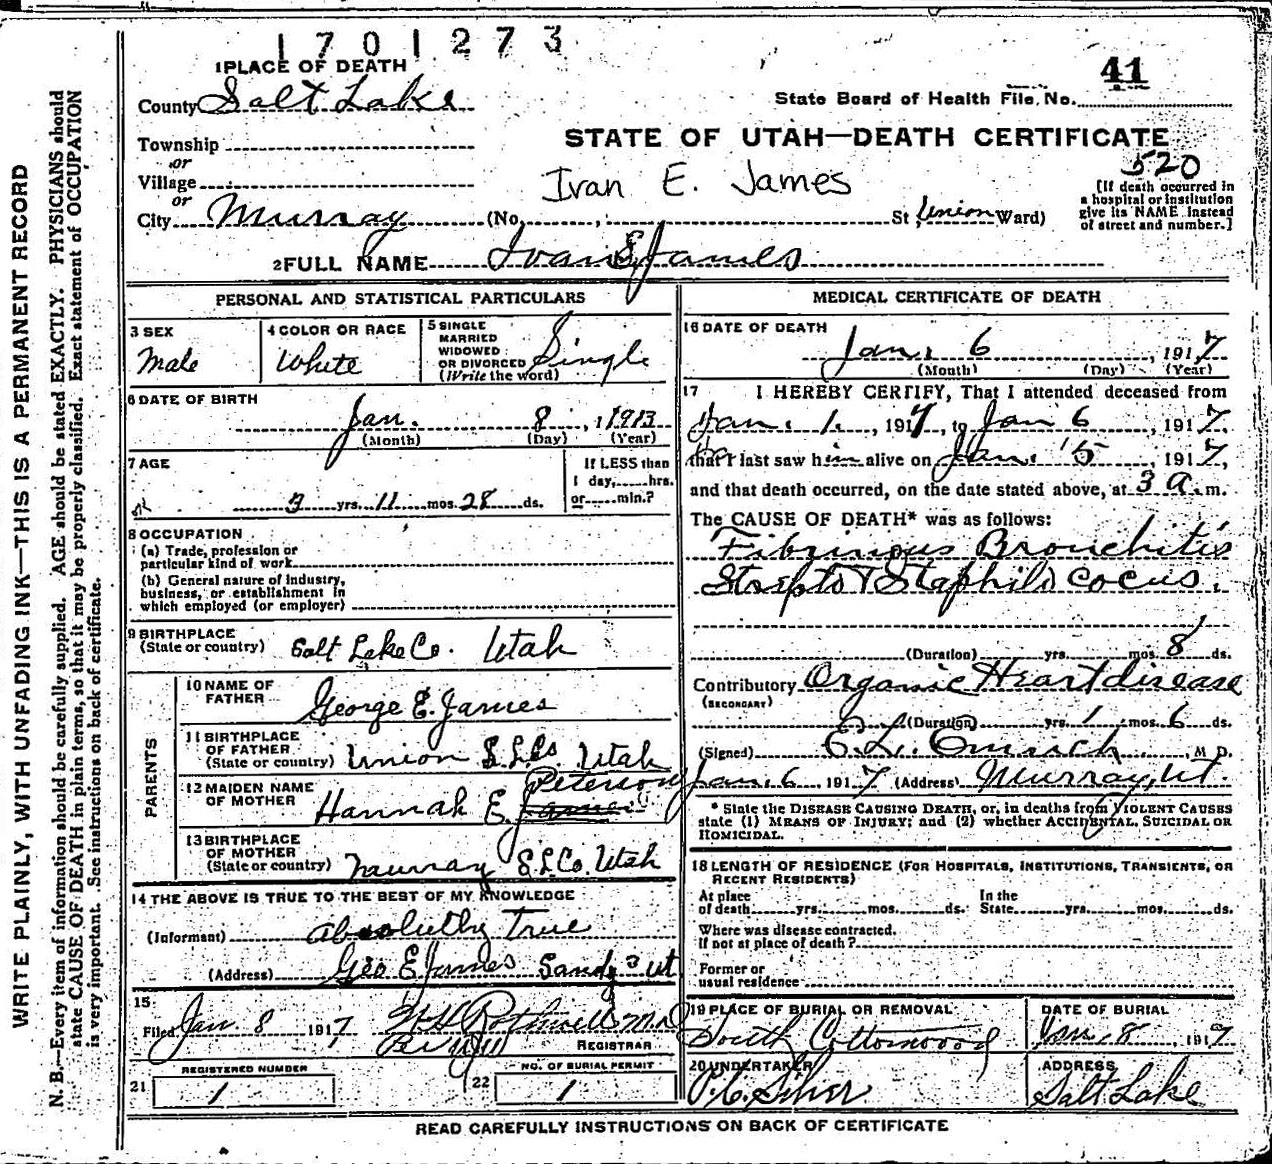 1701273
1 PLACE OF DEATH
41
County Salt Lake
State Board of Health File No.
Township
or
STATE OF UTAH—DEATH CERTIFICATE
520
Village
or
Ivan E. James
[If death occurred in
a hospital or institution
give its NAME instead
of street and number.]
City Murray (No. , St. Union Ward)
2 FULL NAME Ivan E James
PERSONAL AND STATISTICAL PARTICULARS
3 SEX
Male
4 COLOR OR RACE
White
5 SINGLE
MARRIED
WIDOWED
OR DIVORCED
(Write the word)
Single
6 DATE OF BIRTH
Jan. 8, 1913
(Month) (Day) (Year)
7 AGE
3 yrs. 11 mos. 28 ds.
If LESS than
1 day, hrs.
or min.?
8 OCCUPATION
(a) Trade, profession or
particular kind of work
(b) General nature of industry,
business, or establishment in
which employed (or employer)
9 BIRTHPLACE
(State or country) Salt Lake Co. Utah
PARENTS
10 NAME OF
FATHER George E. James
11 BIRTHPLACE
OF FATHER
(State or country) Union S.L.Co. Utah
12 MAIDEN NAME
OF MOTHER Hannah E. James Peterson
13 BIRTHPLACE
OF MOTHER
(State or country) Murray S.L.Co. Utah
14 THE ABOVE IS TRUE TO THE BEST OF MY KNOWLEDGE
(Informant) absolutly True
(Address) Geo E James Sandy 3 Ut
15
Filed Jan 8 1917 Rothwell M.D.
REGISTRAR
REGISTERED NUMBER
21 1
NO. OF BURIAL PERMIT
22 1
MEDICAL CERTIFICATE OF DEATH
16 DATE OF DEATH
Jan. 6, 1917
(Month) (Day) (Year)
17 I HEREBY CERTIFY, That I attended deceased from
Jan. 1., 1917, to Jan 6 1917
that I last saw him alive on Jan. 5, 1917,
and that death occurred, on the date stated above, at 3 a.m.
The CAUSE OF DEATH* was as follows:
Fibrinous Bronchitis
Strepto & Staphilo cocus.
(Duration) yrs. mos. 8 ds.
Contributory Organic Heart disease
(SECONDARY)
(Duration) yrs. 1 mos. 6 ds.
(Signed) , M D.
Jan. 6, 1917 (Address) Murray, Ut.
* State the DISEASE CAUSING DEATH, or, in deaths from VIOLENT CAUSES
state (1) MEANS OF INJURY; and (2) whether ACCIDENTAL, SUICIDAL OR
HOMICIDAL.
18 LENGTH OF RESIDENCE (FOR HOSPITALS, INSTITUTIONS, TRANSIENTS, OR
RECENT RESIDENTS)
At place
of death yrs. mos. ds.
In the
State yrs. mos. ds.
Where was disease contracted.
If not at place of death?
Former or
usual residence
19 PLACE OF BURIAL OR REMOVAL
South Cottonwood
DATE OF BURIAL
Jan. 8, 1917
20 UNDERTAKER
ADDRESS
Salt Lake
READ CAREFULLY INSTRUCTIONS ON BACK OF CERTIFICATE
WRITE PLAINLY, WITH UNFADING INK—THIS IS A PERMANENT RECORD
N. B.—Every item of information should be carefully supplied. AGE should be stated EXACTLY. PHYSICIANS should
state CAUSE OF DEATH in plain terms, so that it may be properly classified. Exact statement of OCCUPATION
is very important. See instructions on back of certificate.